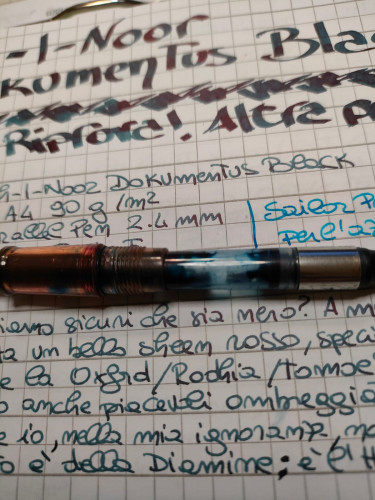 -I-Noor
kumentus Bla
Riprova! Altra p
h-I-Noor Dokumentus Black
A4 90 g/m2
Parallel Pen 2.4 mm
Sailor
per l'a
siamo sicuri che sia nero? A m
un bello sheem rosso, speci
e la Oxford/Rodhia/Tomoe
o anche piacevoli ombreggia
e io, nella mia ignoranza, no
o è della Diamine: è l'